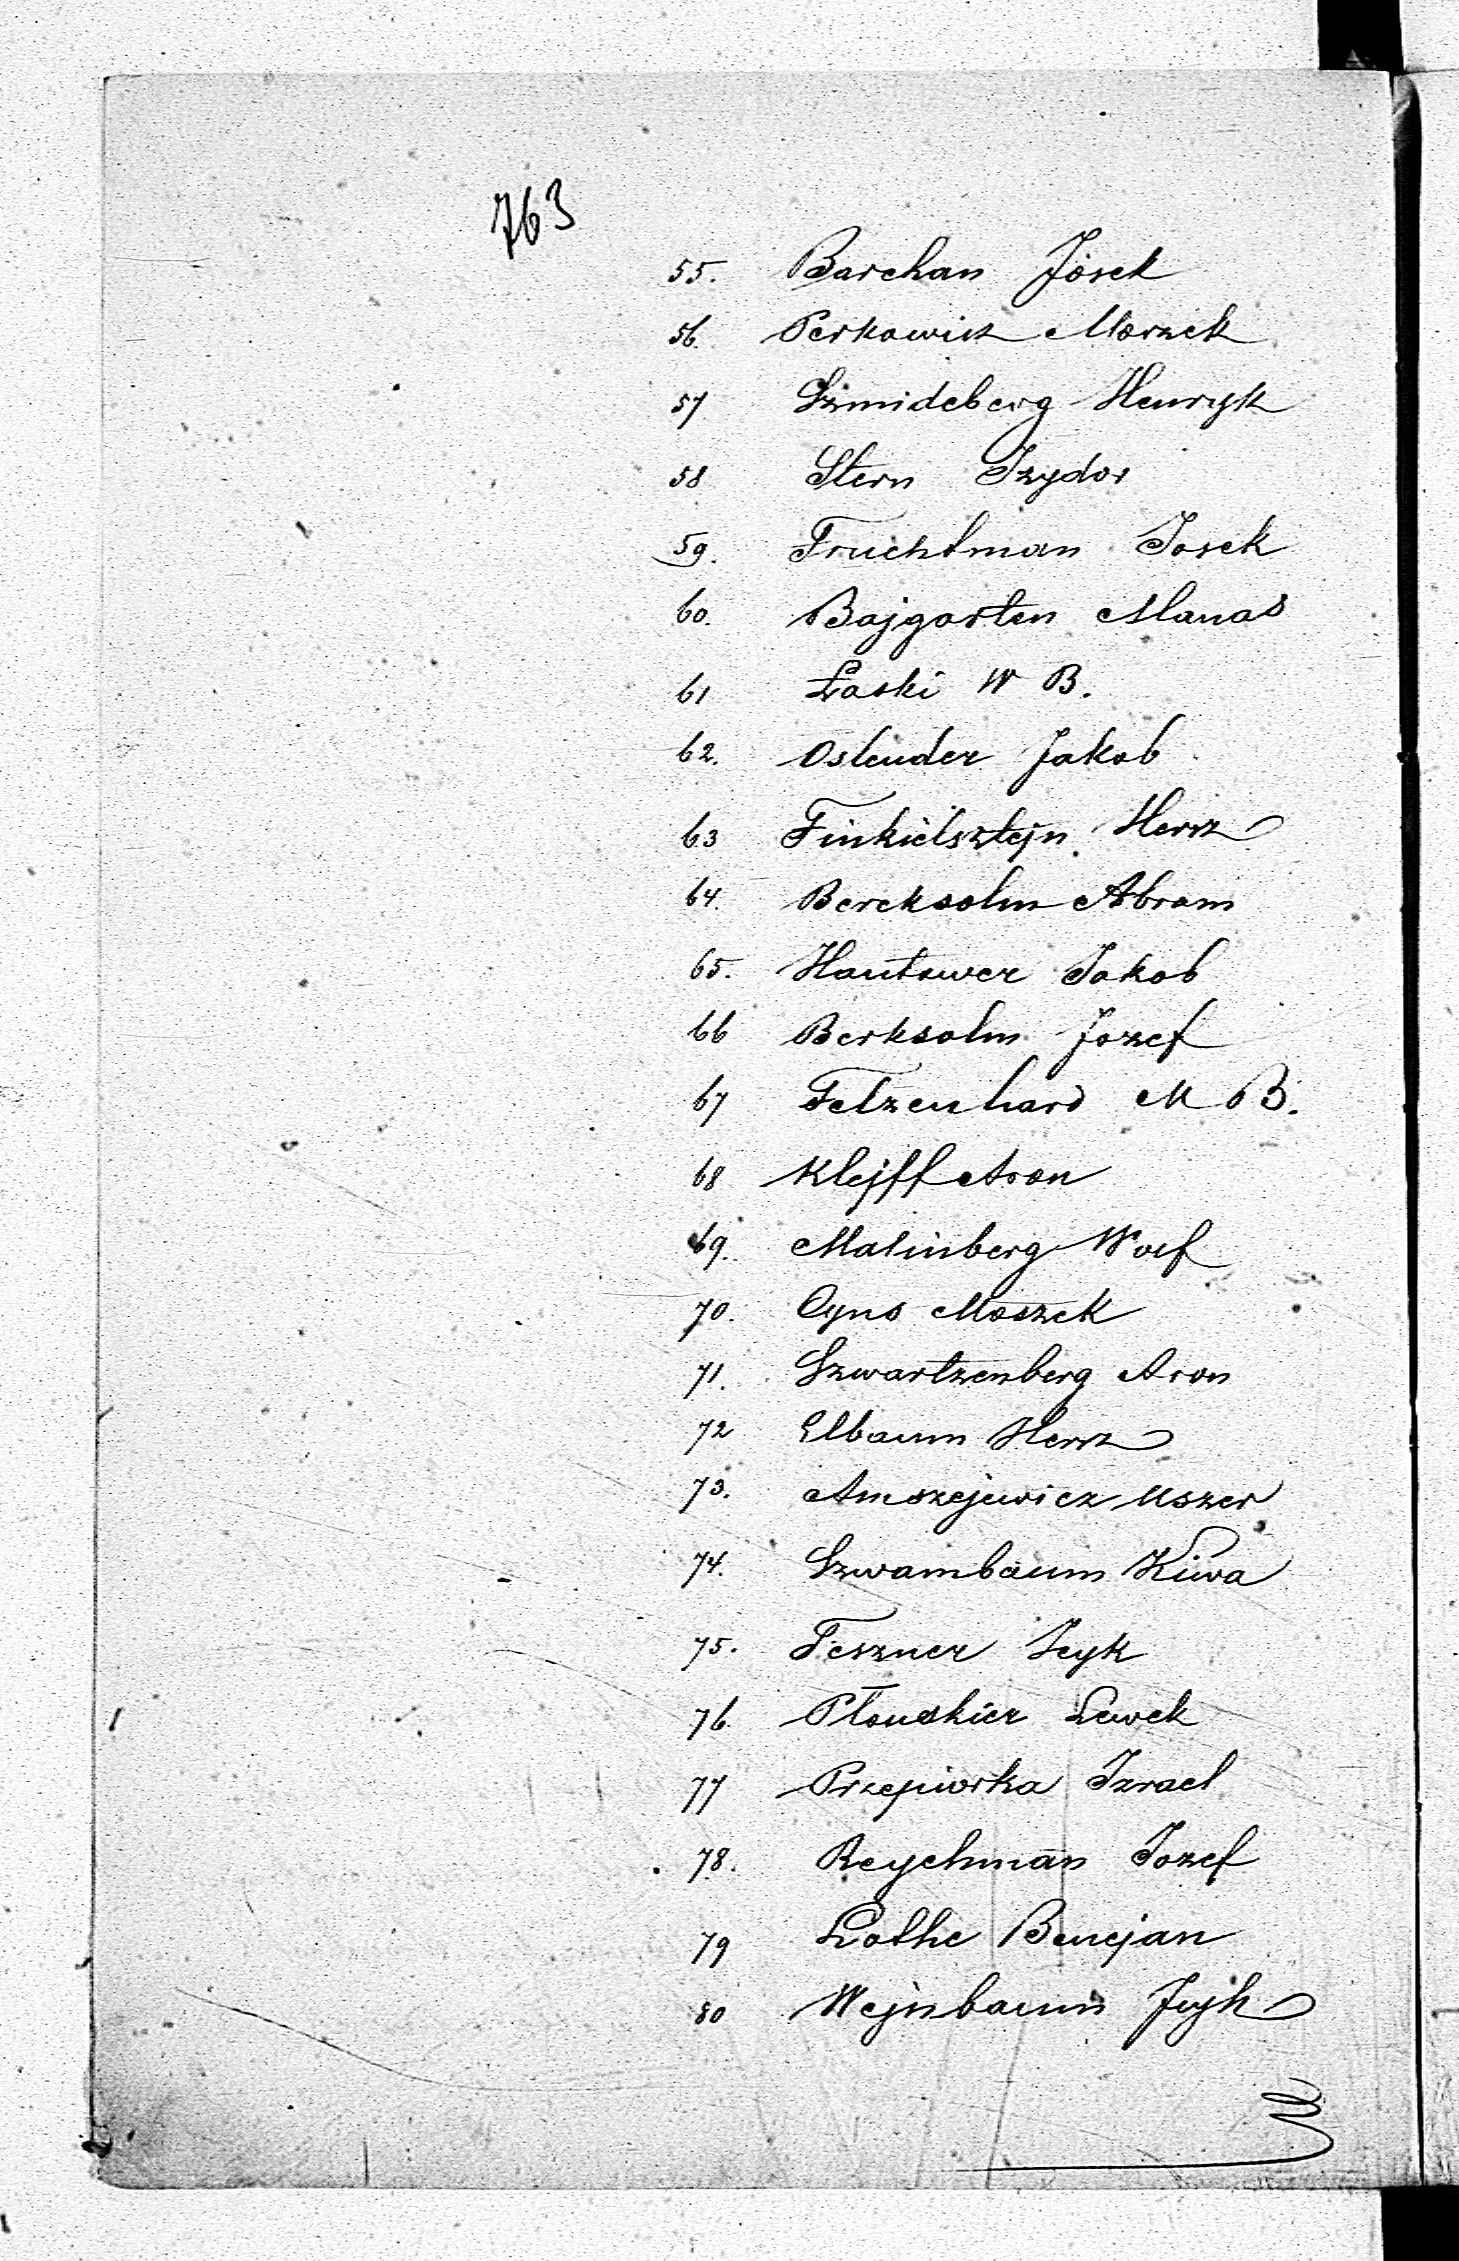 763
55. Barchan Josek
56. Perkowicz Morzek
57 Szmideberg Henryk
58 Stern Izydor
59. Fruchtman Josek
60. Bajgarten Manas
61 Łaski W B.
62. Oslender Jakob
63 Finkielsztejn Hersz
64. Bereksohn Abram
65. Hantower Jakob
66 Berksohn Jozef
67 Felzenhard M B.
68 Klejff Aron
69. Malinberg Wolf
70. Cyns Moszek
71. Szwartzenberg Aron
72 Elbaum Hersz
73. Amszejewicz Uszer
74. Szwambaum Kiwa
75. Feszner Icyk
76. Płonskier Lewek
77 Przepiorka Izrael
78. Reychman Jozef
79 Lothe Benejan
80 Wejnbaum Icyk